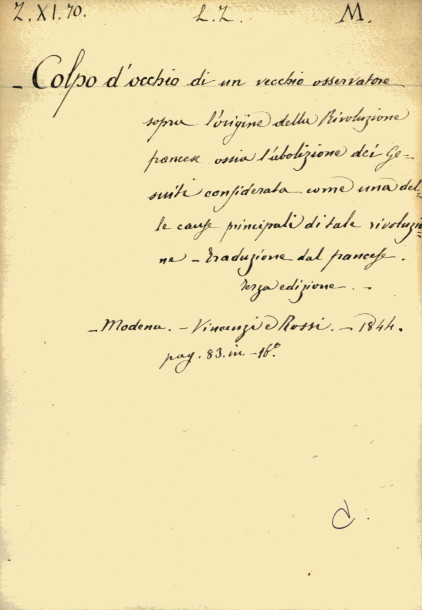 Z. XI. 70. L. Z. M.
Colpo d'occhio di un vecchio osservatore
sopra l'origine della Rivoluzione
francese ossia l'abolizione dei Ge-
suiti considerata come una del-
le cause principali di tale rivoluzio-
ne - Traduzione dal francese.
Terza edizione. -
- Modena. - Vincenzi e Rossi. - 1844.
pag. 83. in - 16.°